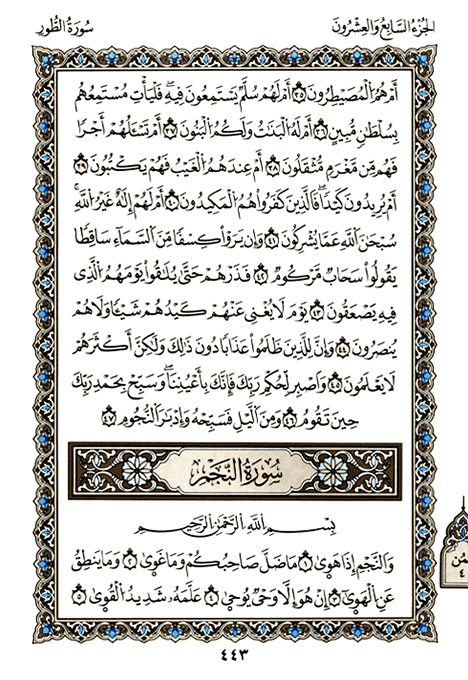 الجُزْءُ السَّابِعُ وَالعِشْرُونَ
سُورَةُ الطُّورِ
أَمْ هُمُ الْمُصَيْطِرُونَ ٣٥ أَمْ لَهُمْ سُلَّمٌ يَسْتَمِعُونَ فِيهِ فَلْيَأْتِ مُسْتَمِعُهُم
بِسُلْطَٰنٍ مُّبِينٍ ٣٦ أَمْ لَهُ الْبَنَٰتُ وَلَكُمُ الْبَنُونَ ٣٧ أَمْ تَسْـَٔلُهُمْ أَجْرًا
فَهُم مِّن مَّغْرَمٍ مُّثْقَلُونَ ٣٨ أَمْ عِندَهُمُ الْغَيْبُ فَهُمْ يَكْتُبُونَ ٣٩
أَمْ يُرِيدُونَ كَيْدًا فَالَّذِينَ كَفَرُوا هُمُ الْمَكِيدُونَ ٤٠ أَمْ لَهُمْ إِلَٰهٌ غَيْرُ اللَّهِ
سُبْحَٰنَ اللَّهِ عَمَّا يُشْرِكُونَ ٤١ وَإِن يَرَوْا كِسْفًا مِّنَ السَّمَآءِ سَاقِطًا
يَقُولُوا سَحَابٌ مَّرْكُومٌ ٤٢ فَذَرْهُمْ حَتَّىٰ يُلَٰقُوا يَوْمَهُمُ الَّذِي
فِيهِ يَصْعَقُونَ ٤٣ يَوْمَ لَا يُغْنِي عَنْهُمْ كَيْدُهُمْ شَيْـًٔا وَلَا هُمْ
يُنصَرُونَ ٤٤ وَإِنَّ لِلَّذِينَ ظَلَمُوا عَذَابًا دُونَ ذَٰلِكَ وَلَٰكِنَّ أَكْثَرَهُمْ
لَا يَعْلَمُونَ ٤٥ وَاصْبِرْ لِحُكْمِ رَبِّكَ فَإِنَّكَ بِأَعْيُنِنَا وَسَبِّحْ بِحَمْدِ رَبِّكَ
حِينَ تَقُومُ ٤٦ وَمِنَ الَّيْلِ فَسَبِّحْهُ وَإِدْبَٰرَ النُّجُومِ ٤٧
سُورَةُ النَّجْمِ
بِسْمِ اللَّهِ الرَّحْمَٰنِ الرَّحِيمِ
وَالنَّجْمِ إِذَا هَوَىٰ ١ مَا ضَلَّ صَاحِبُكُمْ وَمَا غَوَىٰ ٢ وَمَا يَنطِقُ
عَنِ الْهَوَىٰ ٣ إِنْ هُوَ إِلَّا وَحْيٌ يُوحَىٰ ٤ عَلَّمَهُ شَدِيدُ الْقُوَىٰ ٥
٤٤٣